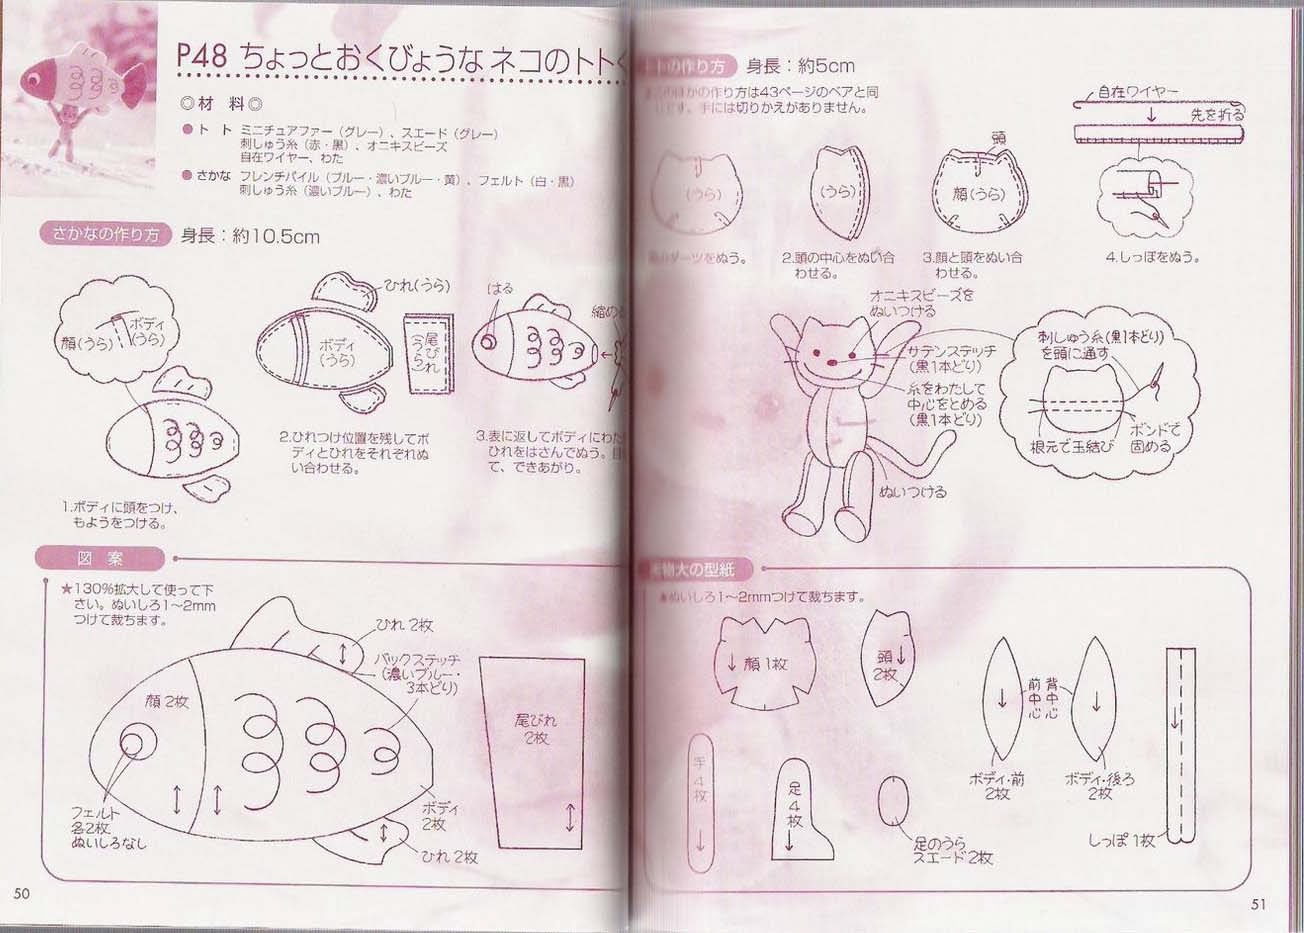 P48 ちょっとおくびょうなネコのトト
◎材 料◎
●トト ミニチュアファー（グレー）、スエード（グレー）
刺しゅう糸（赤・黒）、オニキスビーズ
自在ワイヤー、わた
●さかな フレンチパイル（ブルー・濃いブルー・黄）、フェルト（白・黒）
刺しゅう糸（濃いブルー）、わた
さかなの作り方 身長：約10.5cm
顔（うら）
ボディ
（うら）
1.ボディに頭をつけ、
もようをつける。
ひれ（うら）
ボディ
（うら）
尾びれ
（うら）
2.ひれつけ位置を残してボ
ディとひれをそれぞれぬ
い合わせる。
はる
縮め
3.表に返してボディにわた
ひれをはさんでぬう。
て、できあがり。
図 案
★130%拡大して使って下
さい。ぬいしろ1〜2mm
つけて裁ちます。
ひれ 2枚
バックステッチ
（濃いブルー・
3本どり）
顔 2枚
尾びれ
2枚
フェルト
各2枚
ぬいしろなし
ボディ
2枚
ひれ 2枚
50
トの作り方 身長：約5cm
ほかの作り方は43ページのベアと同
です。手には切りかえがありません。
（うら）
ダーツをぬう。
（うら）
2.頭の中心をぬい合
わせる。
頭
顔（うら）
3.顔と頭をぬい合
わせる。
自在ワイヤー
先を折る
4.しっぽをぬう。
オニキスビーズを
ぬいつける
サテンステッチ
（黒1本どり）
糸をわたして
中心をとめる
（黒1本どり）
ぬいつける
刺しゅう糸（黒1本どり）
を頭に通す
根元で玉結び
ボンドで
固める
物大の型紙
★ぬいしろ1〜2mmつけて裁ちます。
顔 1枚
頭
2枚
前中心
背中心
ボディ・前
2枚
ボディ・後ろ
2枚
手 4枚
足 4枚
足のうら
スエード 2枚
しっぽ 1枚
51